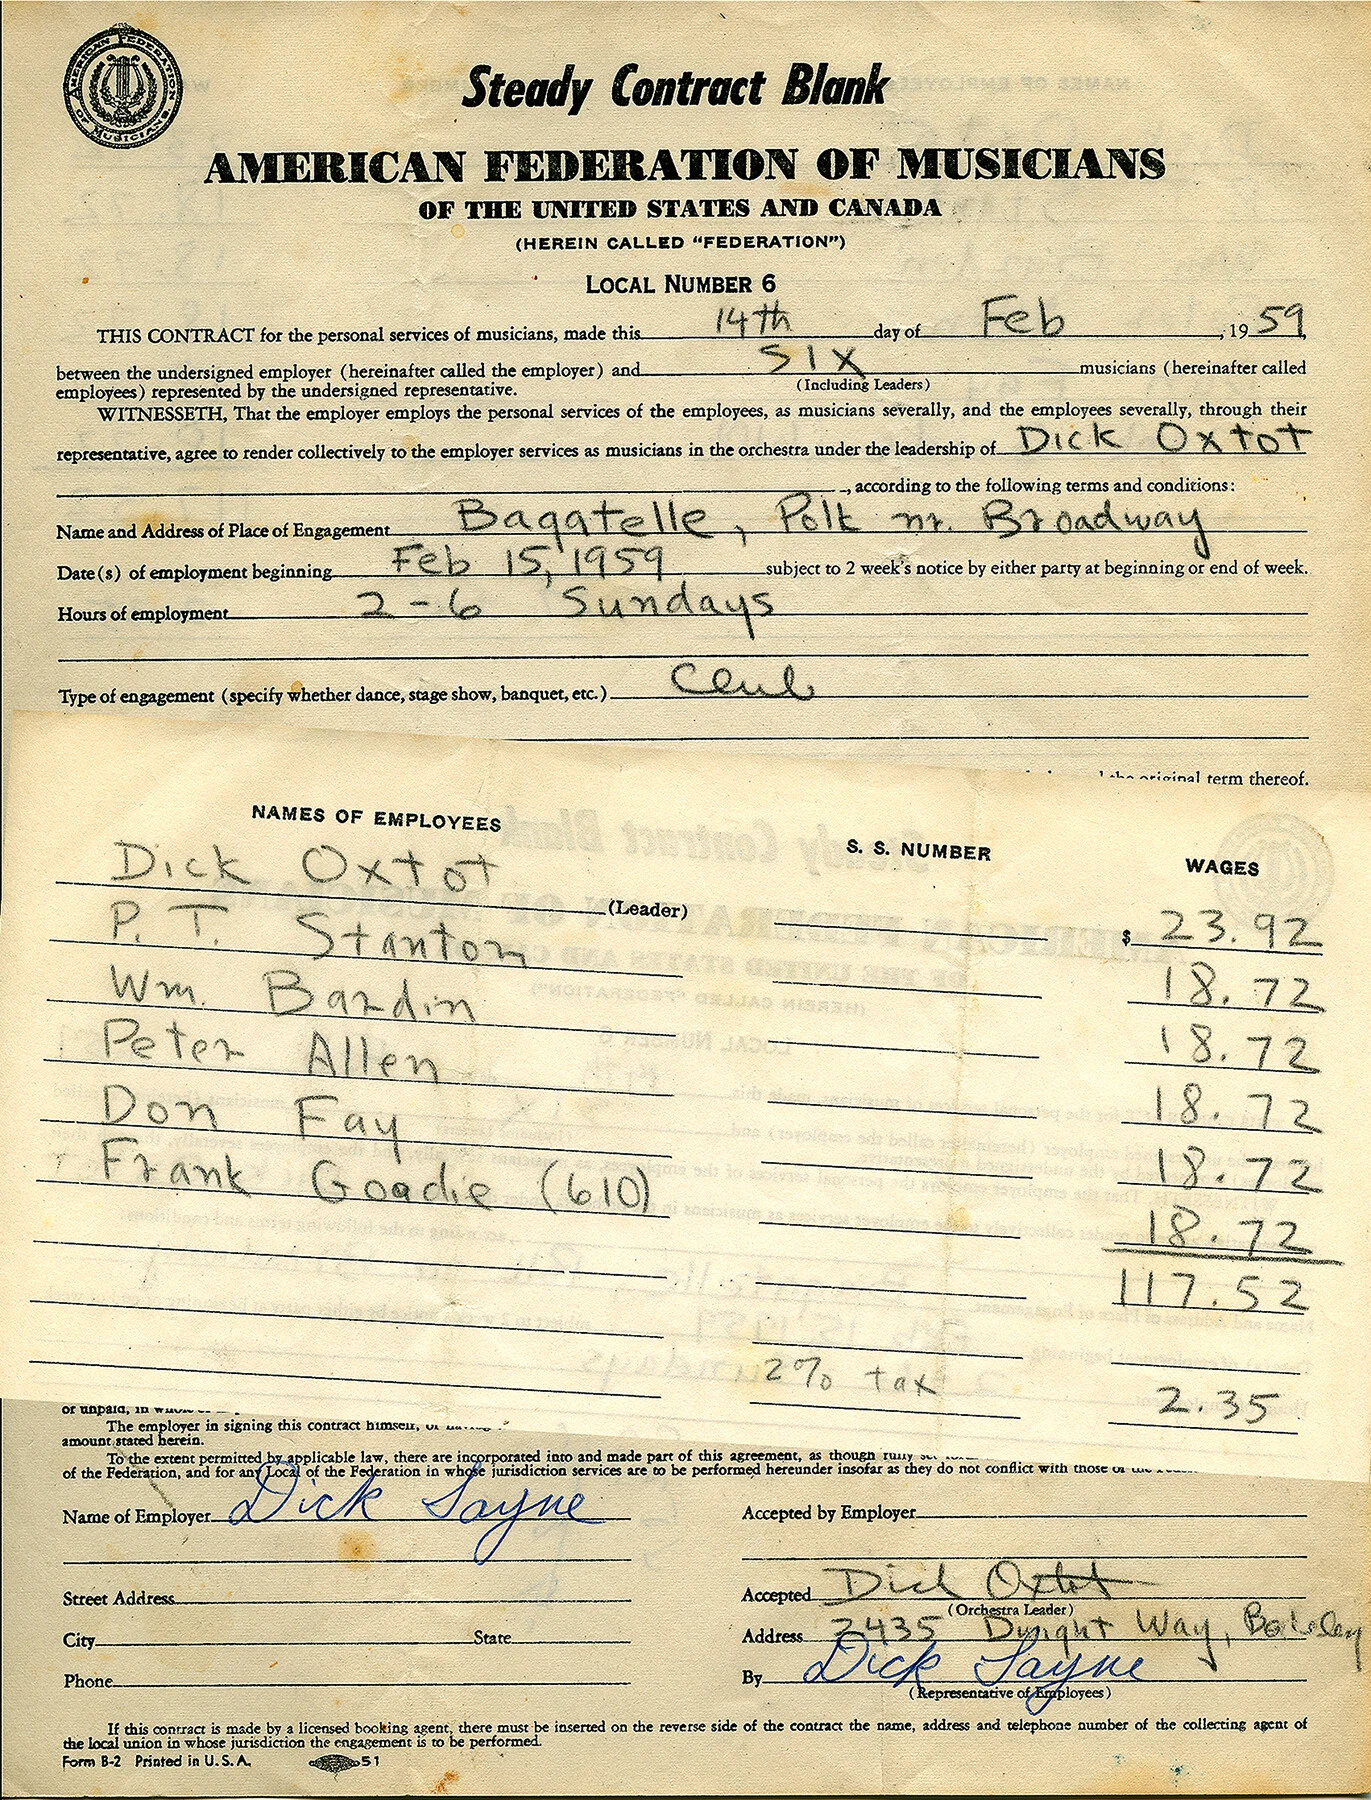 AMERICAN FEDERATION OF MUSICIANS.
Steady Contract Blank
AMERICAN FEDERATION OF MUSICIANS
OF THE UNITED STATES AND CANADA
(HEREIN CALLED "FEDERATION")
LOCAL NUMBER 6
THIS CONTRACT for the personal services of musicians, made this 14th day of Feb, 1959,
between the undersigned employer (hereinafter called the employer) and SIX musicians (hereinafter called
(Including Leaders)
employees) represented by the undersigned representative.
WITNESSETH, That the employer employs the personal services of the employees, as musicians severally, and the employees severally, through their
representative, agree to render collectively to the employer services as musicians in the orchestra under the leadership of Dick Oxtot
, according to the following terms and conditions:
Name and Address of Place of Engagement Bagatelle, Polk nr. Broadway
Date(s) of employment beginning Feb 15, 1959 subject to 2 week's notice by either party at beginning or end of week.
Hours of employment 2-6 Sundays
Type of engagement (specify whether dance, stage show, banquet, etc.) Club
the original term thereof.
NAMES OF EMPLOYEES S. S. NUMBER WAGES
Dick Oxtot (Leader) $ 23.92
P. T. Stanton 18.72
Wm. Bardin 18.72
Peter Allen 18.72
Don Fay 18.72
Frank Goadie (610) 18.72
117.52
2% tax 2.35
or unpaid, in
The employer in signing this contract himself, or
amount stated herein.
To the extent permitted by applicable law, there are incorporated into and made part of this agreement, as though fully
of the Federation, and for any Local of the Federation in whose jurisdiction services are to be performed hereunder insofar as they do not conflict with those of the
Name of Employer Dick Sayne Accepted by Employer
Street Address Accepted Dick Oxtot
(Orchestra Leader)
City State Address 2435 Dwight Way, Berkeley
Phone By Dick Sayne
(Representative of Employees)
If this contract is made by a licensed booking agent, there must be inserted on the reverse side of the contract the name, address and telephone number of the collecting agent of
the local union in whose jurisdiction the engagement is to be performed.
Form B-2 Printed in U.S.A. 51